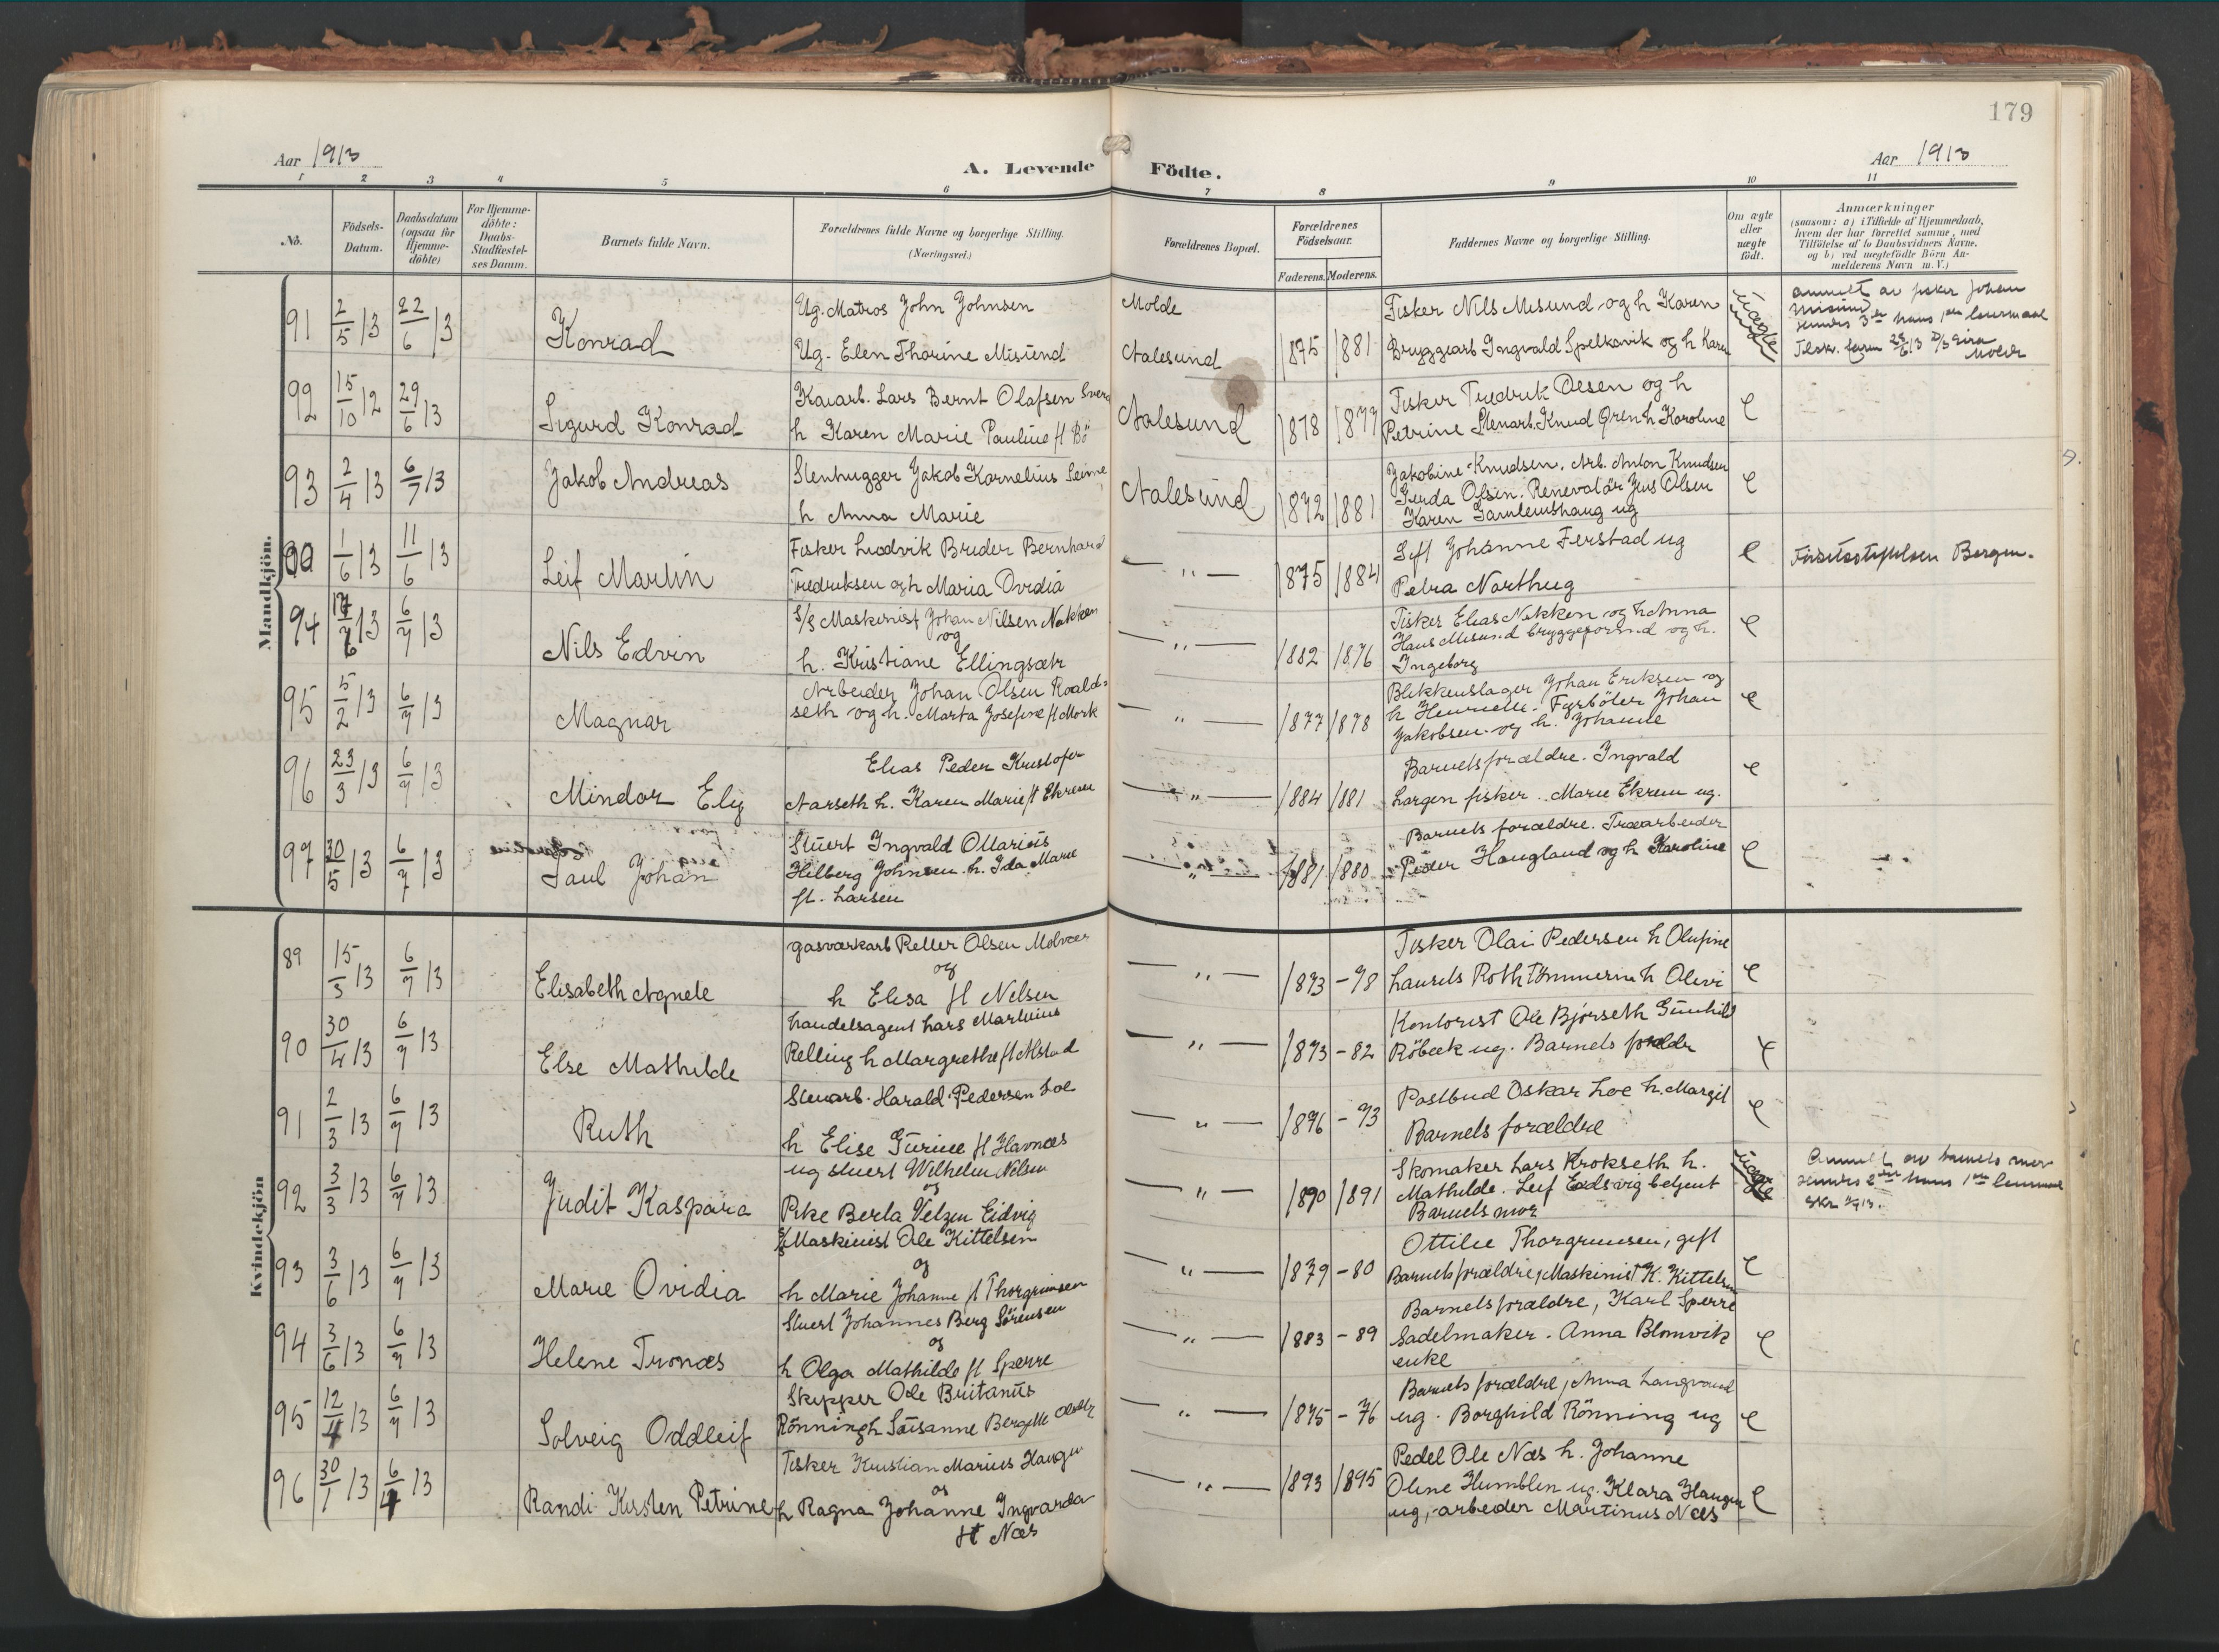 179
Aar 1913
A. Levende Födte.
Aar 1913
1 2 3 4 5 6 7 8 9 10 11
No.
Födsels-Datum.
Daabsdatum (ogsaa for Hjemme-döbte)
For Hjemme-döbte: Daabs-Stadfæstel-ses Datum.
Barnets fulde Navn.
Forældrenes fulde Navne og borgerlige Stilling. (Næringsvei.)
Forældrenes Bopæl.
Forældrenes Födselsaar.
Faderens. Moderens.
Faddernes Navne og borgerlige Stilling.
Om ægte eller uægte födt.
Anmærkninger
(saasom: a) i Tilfælde af Hjemmedaab,
hvem der har forrettet samme, med
Tilföielse af to Daabsvidners Navne.
og b) ved uægtefödte Börn An-
melderens Navn m. V.)
Mandkjön.
91 2/5 13 22/6 13 Konrad
Ug. Matros John Johnsen
Ug. Elen Thorine Misund
Molde
Aalesund 1875 1881
Fisker Nils Misund og h Karen
Bryggearb Ingvald Spelkavik og h Karen
uægte
anmelt av fisker Johan
Misund
92 15/10 12 29/6 13 Sigurd Konrad
Lars Bernt Olafsen
h Karen Marie Pauline f Bö
Aalesund 1878 1877
Fisker Fredrik Olsen og h
Petrine Stenarb. Knud Ören h Karoline
e
93 2/4 13 6/7 13 Jakob Andreas
Stenhugger Jakob Kornelius Leine
h Anna Marie
Aalesund 1872 1881
Jakobine Knudsen, Arb. Anton Knudsen
Gerda Olsen. Jens Olsen
Karen Gamlemshaug ug
e
1/6 13 11/6 13 Leif Martin
Fisker Ludvik Brider Bernhard
Fredriksen og h Maria Ovidia
— „ — 1875 1884
Johanne Ferstad ug
Petra Northug
e
Födselsstiftelsen Bergen.
94 17/6 13 6/7 13 Nils Edvin
S/S Maskinist Johan Nilsen Nekken
og
h. Kristiane Ellingsæter
— „ — 1882 1876
Fisker Elias Nekken og h Anna
Hans Misund bryggeformd og h.
Ingeborg
e
95 5/2 13 6/7 13 Magnar
Arbeider Johan Olsen Roald-
seth og h. Marta Josefine f Mork
— „ — 1877 1878
Blikkenslager Johan Eriksen og
h Henriette. Fyrböter Johan
Jakobsen og h. Johanne
e
96 23/3 13 6/7 13 Mindor Ely
Elias Peder Kristofer
Aarseth h. Karen Marie f Ekrem
— „ — 1884 1881
Barnets forældre. Ingvald
Largen fisker. Marie Ekrem ug.
e
97 30/5 13 6/7 13 Paul Johan
Stuert Ingvald OMarius
Hilberg Johnsen h. Ida Marie
f. Larsen
— „ — 1881 1880
Barnets forældre. Træarbeider
Peder Haugland og h Karoline
e
Kvindekjön
89 15/5 13 6/7 13 Elisabeth Agnete
gasværkarb Petter Olsen Molvær
og
h Elisa f Nilsen
— „ — 1873 - 78
Fisker Olai Pedersen h Olufine
Laurits Roth tömmerm h Olevi
e
90 30/4 13 6/7 13 Else Mathilde
Handelsagent Lars Martinius
Relling h Margrethe f Alstad
— „ — 1873 - 82
Kontorist Ole Bjørseth Gunhild
Röbæk ug. Barnets forældr
e
91 2/3 13 6/7 13 Ruth
Stenarb. Harald Pedersen Loe
h Elise Gurine f Havnæs
— „ — 1896 - 93
Postbud Oskar Loe h. Margit
Barnets forældre
e
92 3/3 13 6/7 13 Judit Kaspara
ug stuert Wilhelm Nilsen
og
Pike Berta Velgen Eidvig
— „ — 1890 1891
Skomaker Lars Krokseth h.
Mathilde. Leif Eidsvig betjent
Barnets mor
uægte
Anmelt av barnets mor
93 3/6 13 6/7 13 Marie Ovidia
Maskinist Ole Kittelsen
og
h Marie Johanne f Thorgrimsen
— „ — 1879 - 80
Ottilie Thorgrimsen, gift
Barnets forældre, Maskinist K. Kittelsen
e
94 3/6 13 6/7 13 Helene Tronæs
Stuert Johannes Berg Sörensen
og
h Olga Mathilde f Sperre
— „ — 1883 - 89
Barnets forældre, Karl Sperre
Sadelmaker. Anna Blomvik
enke
e
95 12/4 13 6/7 13 Solveig Oddleif
Skipper Ole Britanus
Rönning h Susanne Bergitte
— „ — 1875 - 76
Barnets forældre, Anna Langvand
ug. Borghild Rönning ug
e
96 30/1 13 6/7 13 Randi Kirsten Petrine
Fisker Kristian Marius Haugen
og
h Ragna Johanne Ingvarda
f Næs
— „ — 1893 1895
Pedel Ole Næs h. Johanne
Oline Humblen ug. Klara Haugen
ug, arbeider Martinus Næs
e